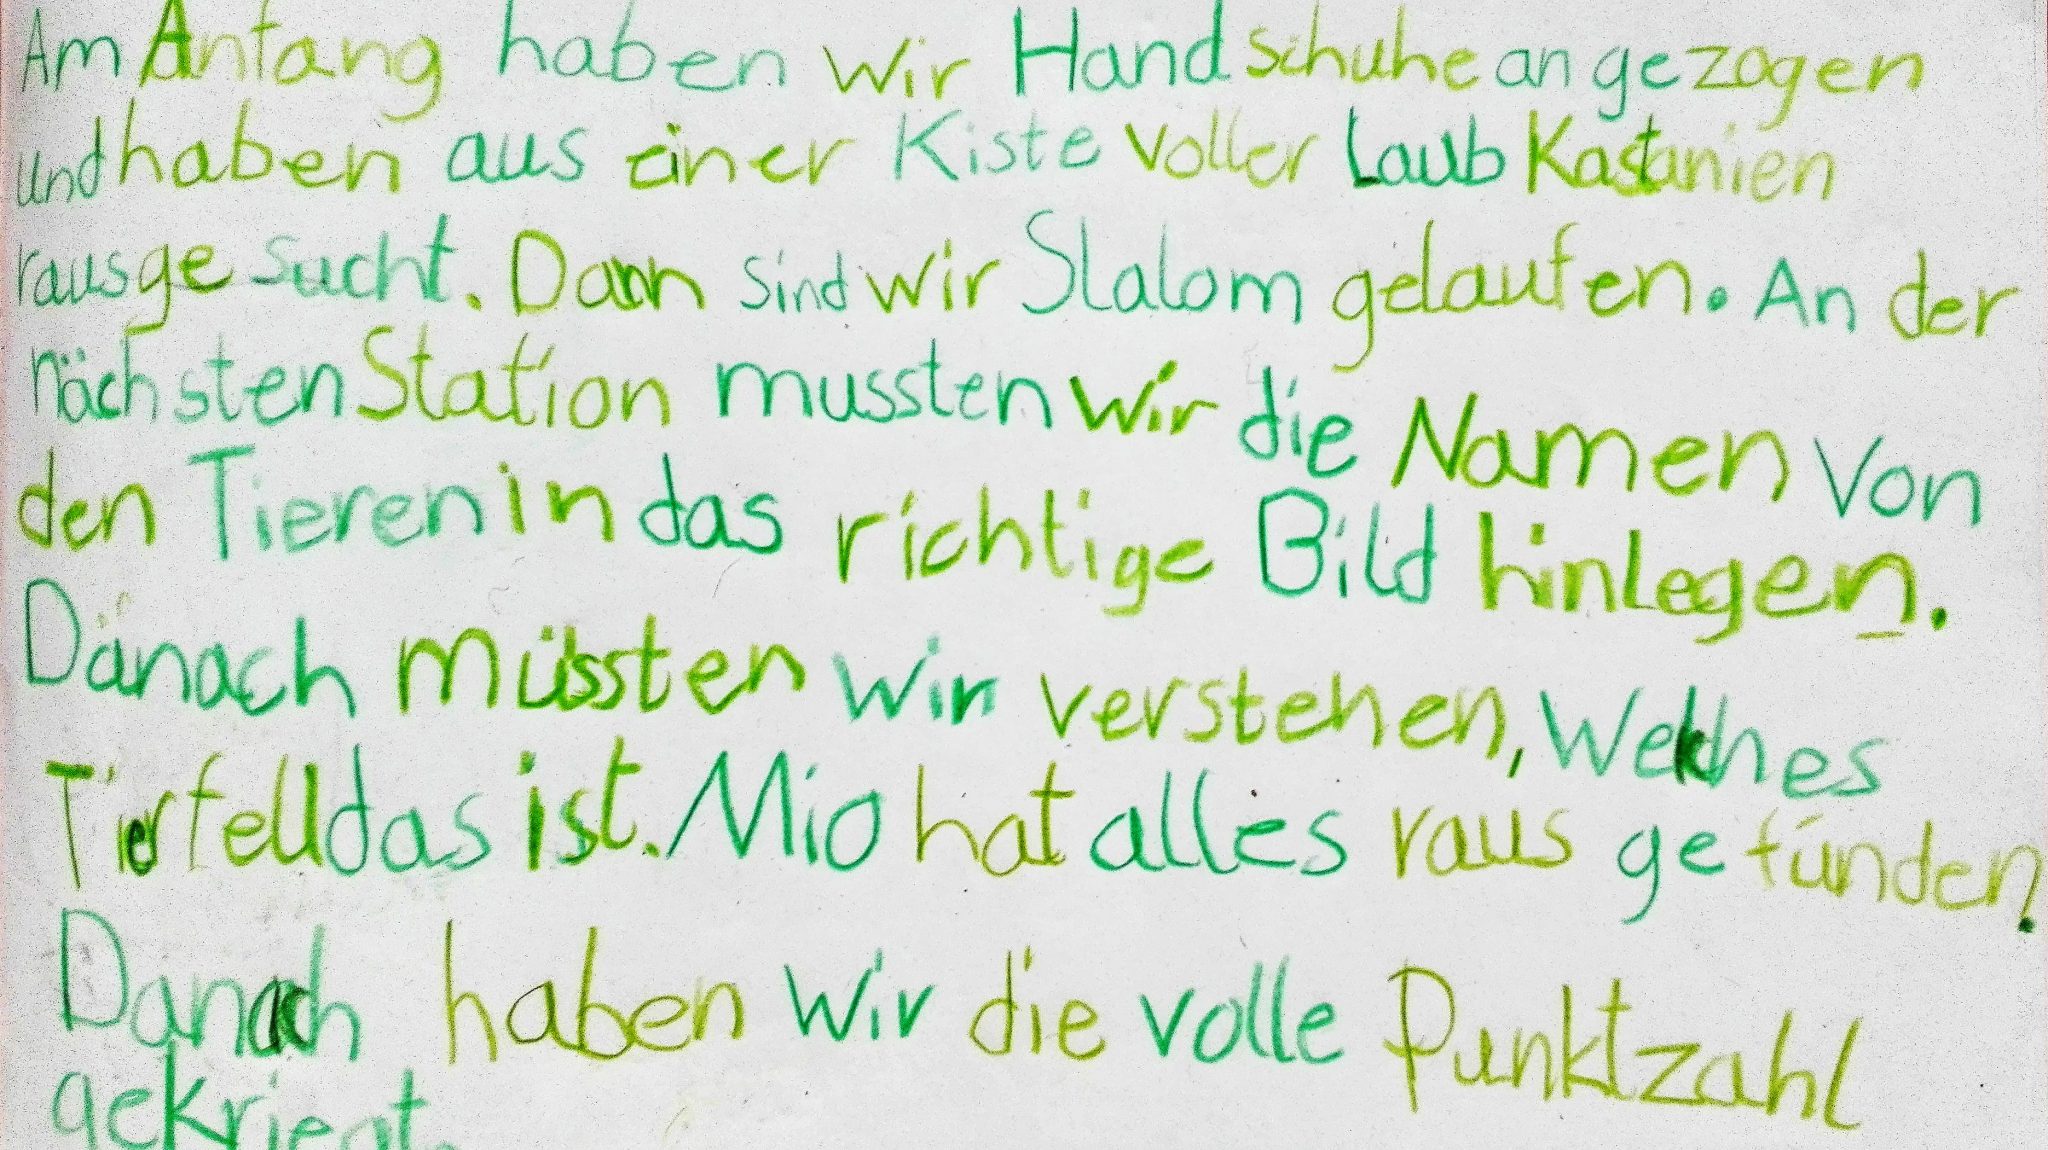 Am Anfang haben wir Handschuhe angezogen
und haben aus einer Kiste voller Laub Kastanien
rausgesucht. Dann sind wir Slalom gelaufen. An der
nächsten Station mussten wir die Namen von
den Tieren in das richtige Bild hinlegen.
Danach müssten wir verstehen, welches
Tierfell das ist. Mio hat alles raus gefunden.
Danach haben wir die volle Punktzahl
gekriegt.